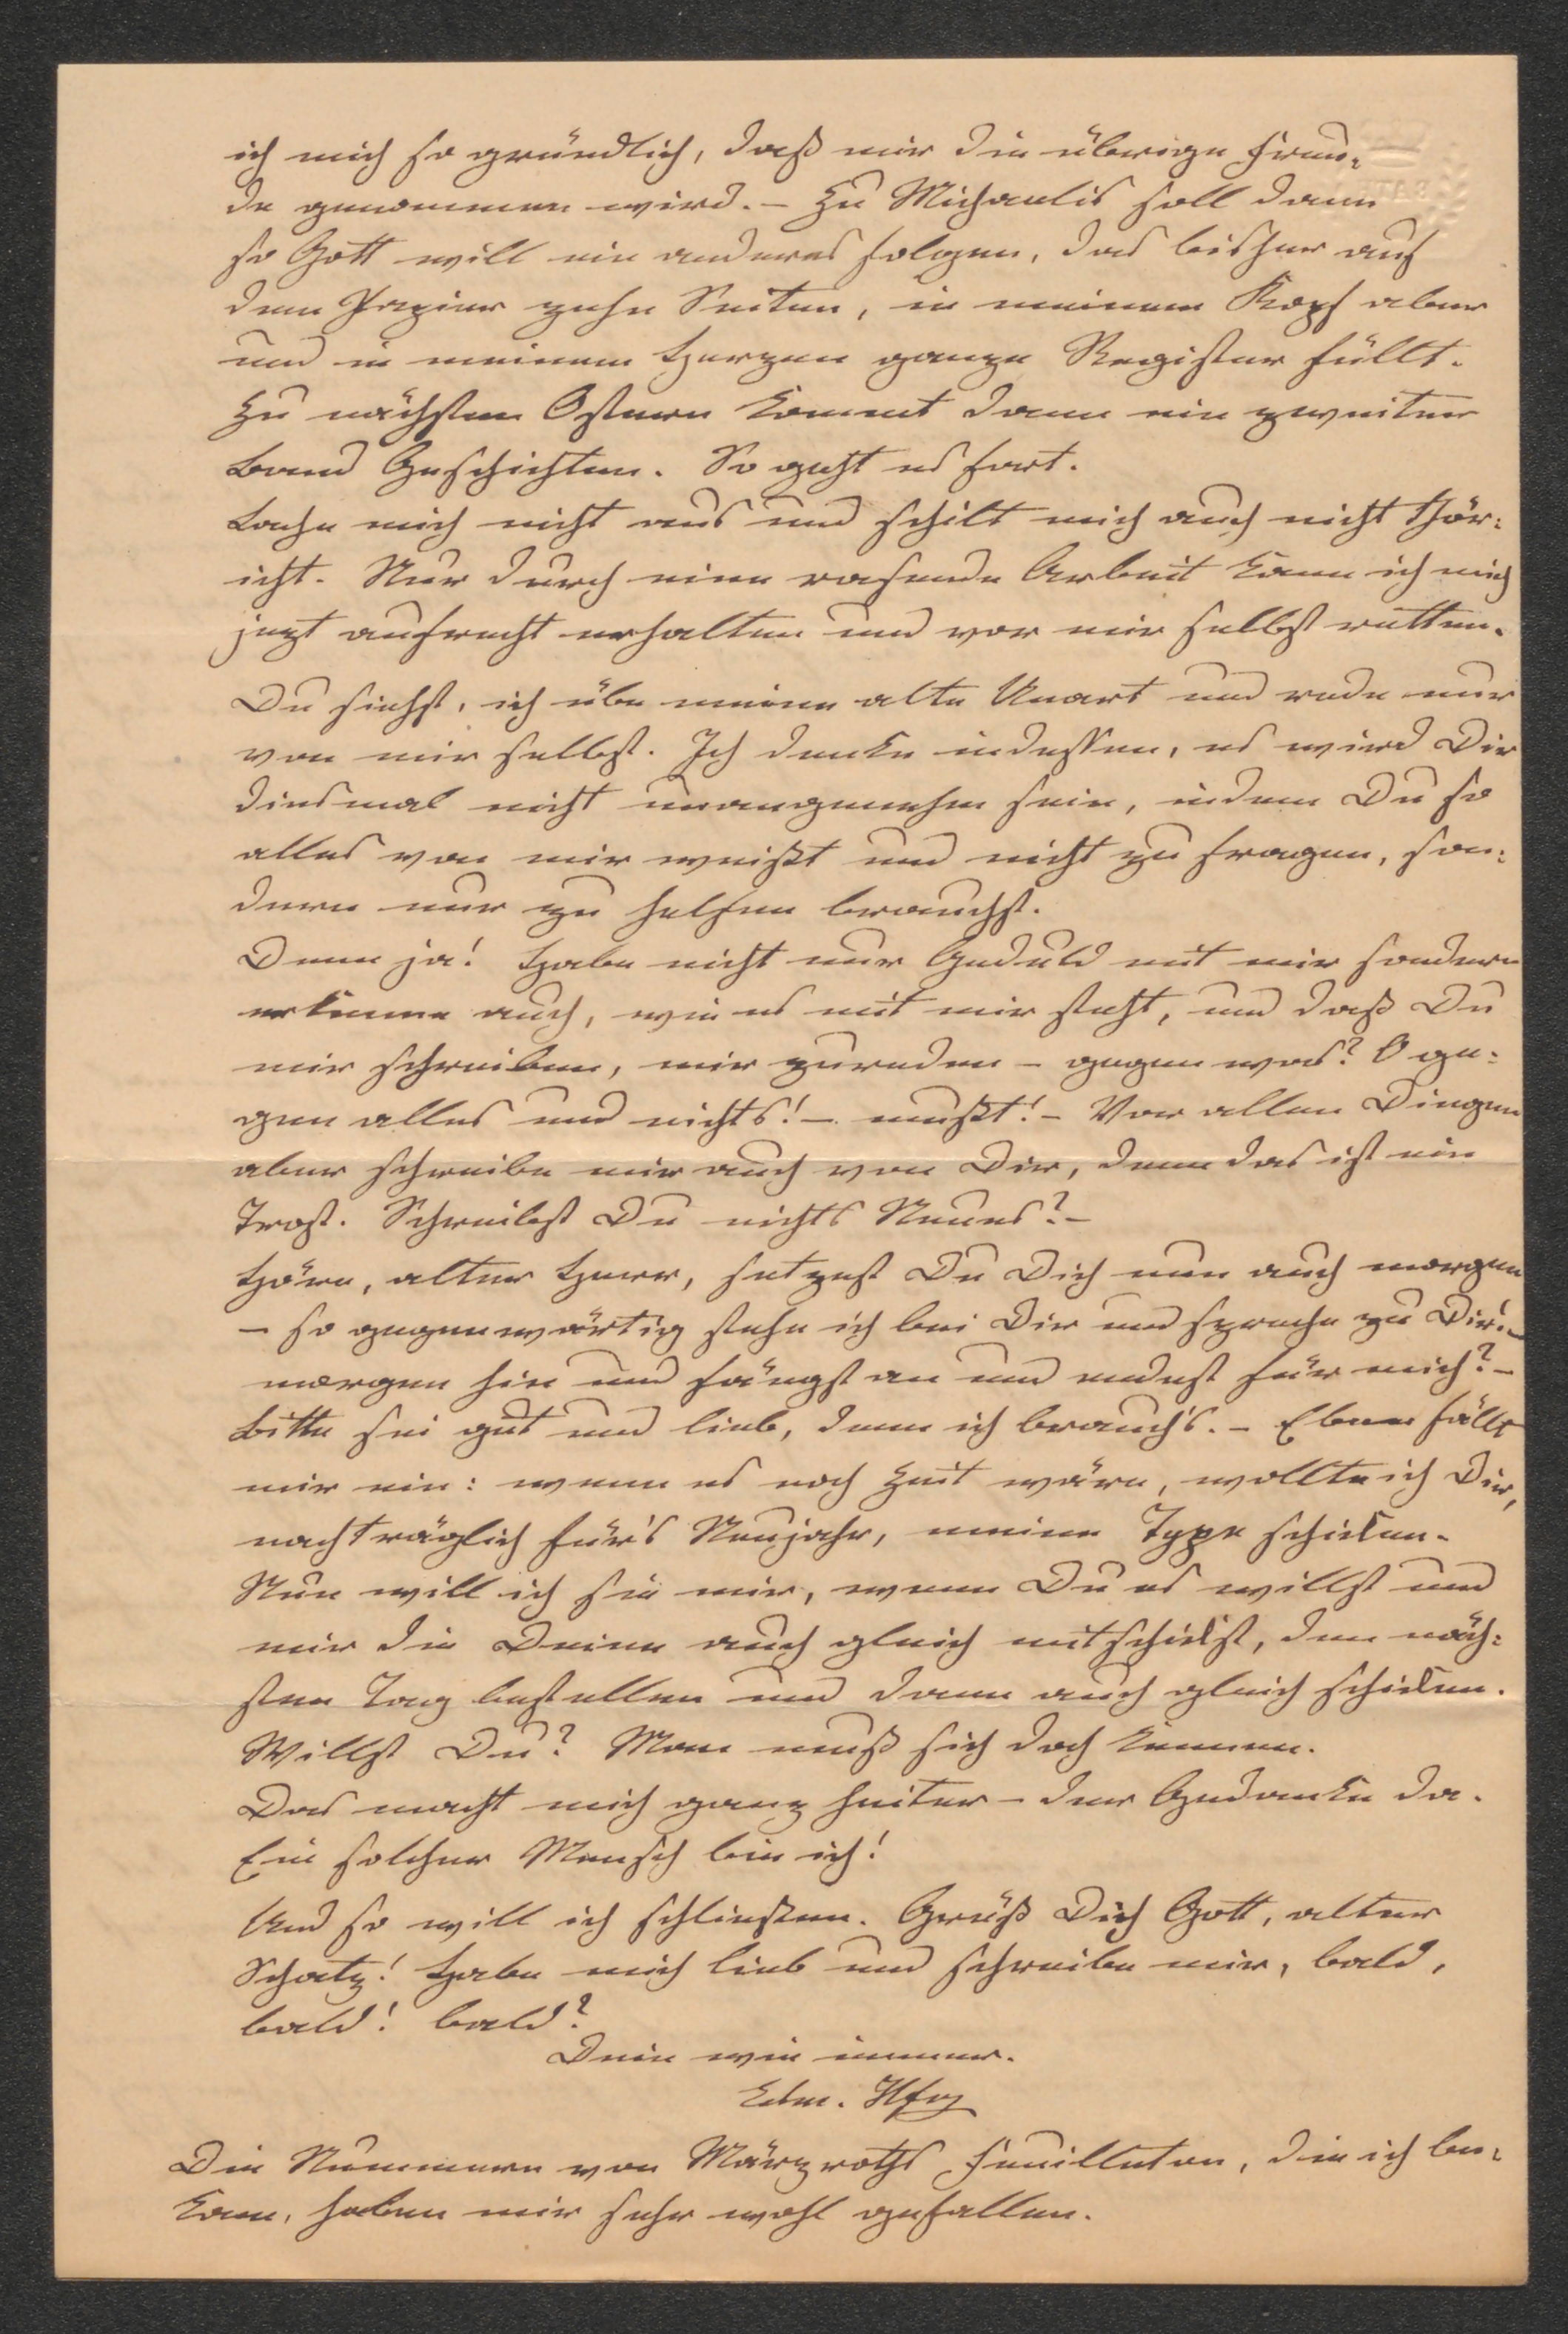 ich mich so gründlich, daß mir die übrige Freu-
de genommen wird. – Zu Michaelis soll dann
so Gott will ein anderes folgen, das bisher auf
dem Papier zehn Seiten, in meinem Kopf aber
und in meinem Herzen ganze Register füllt.
Zu nächsten Ostern kommt dann ein zweiter
Band Geschichten. So geht es fort.
Lache mich nicht aus und schilt mich auch nicht thör-
icht. Nur durch eine rasende Arbeit kann ich mich
jezt aufrecht erhalten und vor mir selbst retten.
Du siehst, ich übe meine alte Unart und rede nur
von mir selbst. Ich denke indessen, es wird Dir
diesmal nicht unangenehm sein, indem Du so
alles von mir weißt und nicht zu fragen, son-
dern nur zu helfen brauchst.
Denn ja! Habe nicht nur Geduld mit mir sondern
erkenne auch, wie es mit mir steht, und daß Du
mir schreiben, mir zureden – gegen was? O ge-
gen alles und nichts! – mußt! – Vor allen Dingen
aber schreibe mir auch von Dir, denn das ist ein
Trost. Schreibst Du nichts Neues? –
Höre, alter Herr, setzest Du Dich nun auch morgen
– so gegenwärtig stehe ich bei Dir und spreche zu Dir! –
morgen hin und fängst an und endest für mich? –
Bitte sei gut und lieb, denn ich brauch's. – Eben fällt
mir ein: wenn es noch Zeit wäre, wollte ich Dir,
nachträglich für's Neujahr, meine Type schicken.
Nun will ich sie mir, wenn Du es willst und
mir die Deine auch gleich mitschickst, den näch-
sten Tag bestellen und dann auch gleich schicken.
Willst Du? Man muß sich doch kennen.
Das macht mich ganz heiter – der Gedanke da.
Ein solcher Mensch bin ich!
Und so will ich schließen. Grüß Dich Gott, alter
Schatz! Habe mich lieb und schreibe mir, bald,
bald! bald?
Dein wie immer.
Edm. Hfr
Die Nummern von Märzroths Feuilleton, die ich be-
kam, haben mir sehr wohl gefallen.